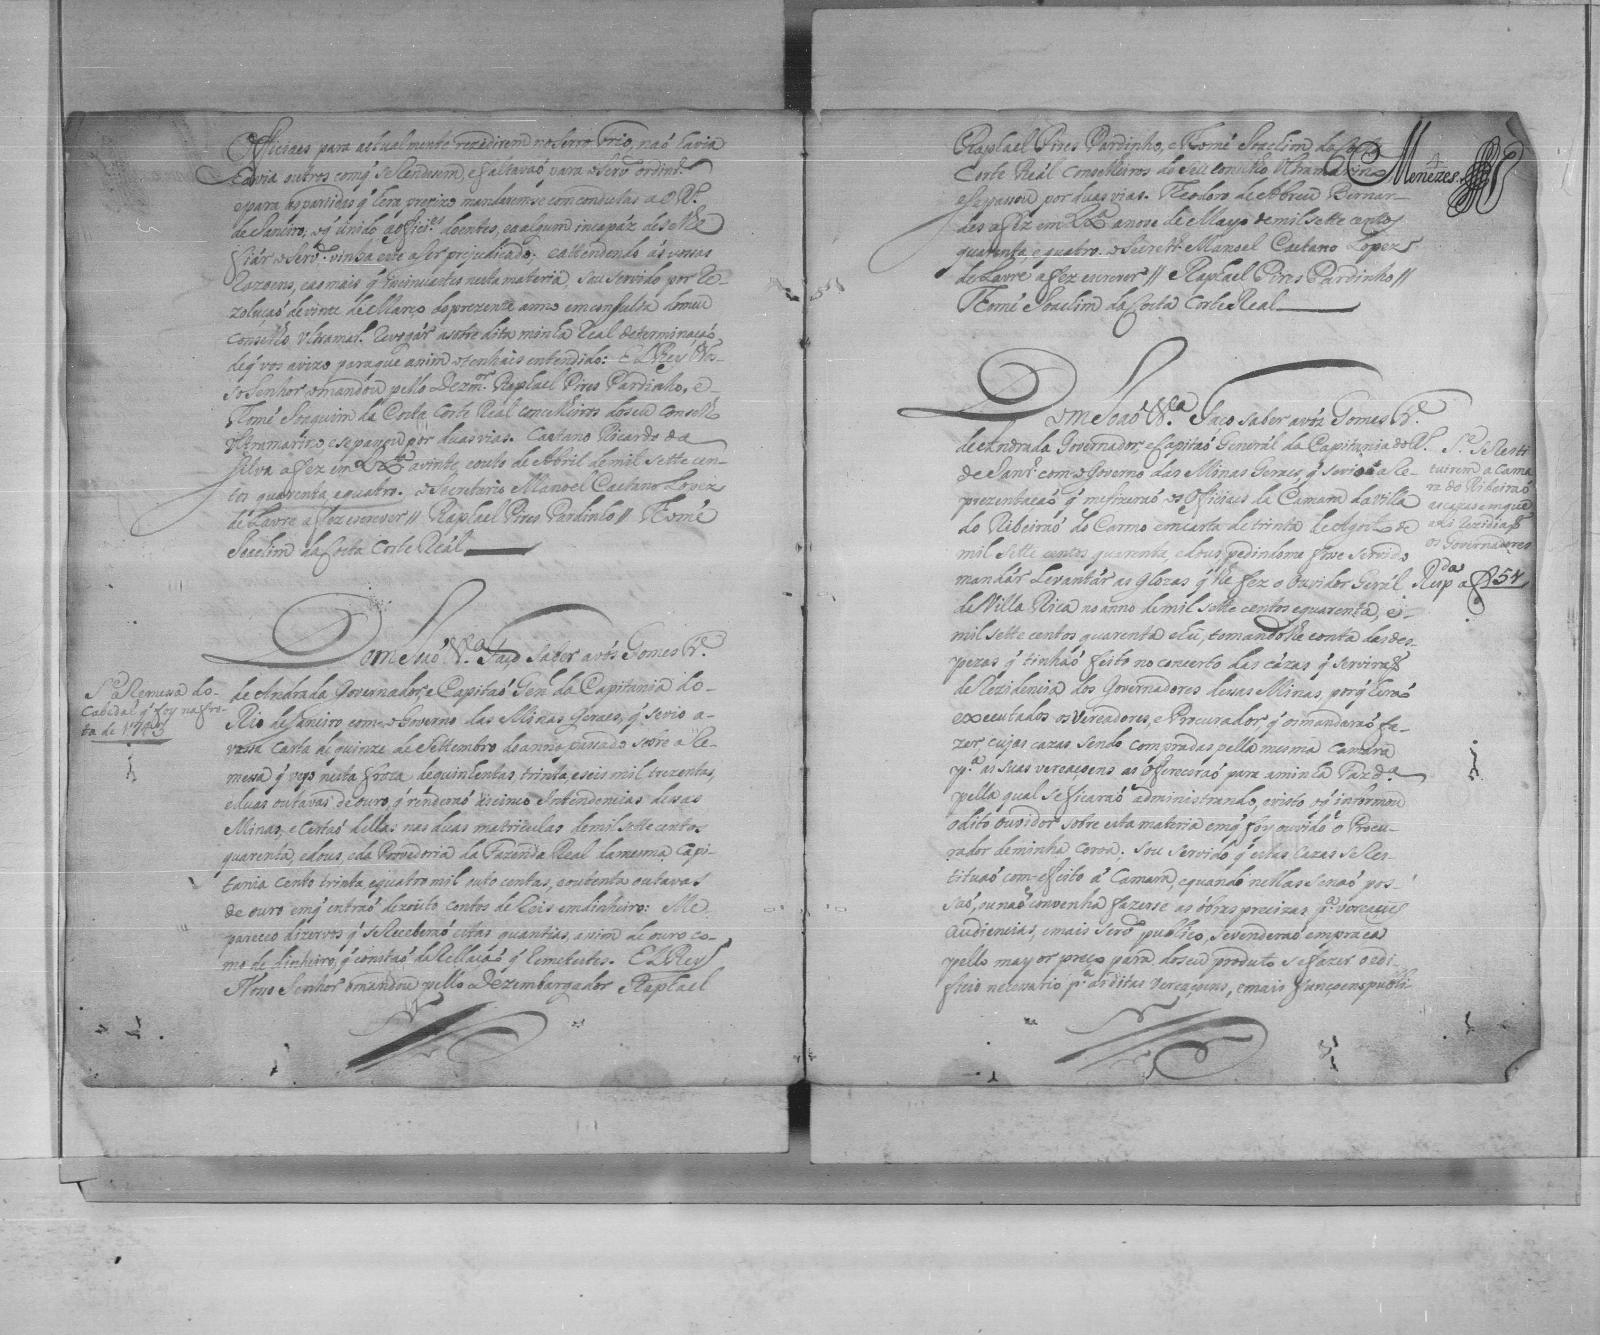 Officiaes para actualmente rezidirem no Serro Frio, naó havia
havia outros com q̃ se Rendesem, e faltavaó para o Serv.º ordinr.º
e para as partidas q̃ hera precizo mandarem-se com condutas a o R.º
de Janeiro, e q̃ unido a officiaes doentes, e a algum incapáz de se lhe
fiár o Serv.º vinha este a ser prejudicado; e attendendo ás vossas
Razoens, e ao mais q̃ Reprezentaes nesta materia, Sou Servido por Re-
zoluçaó de vinte de Março do prezente anno em consulta do meu
Conselho Ultramar.º Revogár a sobre dita minha Real determinaçaó
de q̃ vos avizo para que assim o tenhais entendido: El Rey Nos-
so Senhor o mandou pello Dez.ºr Raphael Pires Pardinho, e
Thomé Joaquim da Costa Corte Reál concelheiros do seu Conselho
Ultramarino e se passou por duas vias. Caetano Ricardo da
Silva a fez em Lx.ª a vinte, e outo de Abril de mil sette cen-
tos quarenta, e quatro. o Secretario Manoel Caetano Lopez
de Lavre a fez escrever // Raphael Pires Pardinho // Thomé
Joachim da Costa Corte Reál
Dom Joaó V.ª Faço saber a vós Gomes Fr.ª
de Andrada Governador, e Capitaó Gen.al da Capitania do
Rio de Janeiro, com o Governo das Minas Geraes, q̃ se vio a
vossa Carta de quinze de Settembro do anno passado sobre a Re-
messa q̃ veyo nesta frota de quinhentas, trinta, e seis mil trezentas,
e duas outavas de ouro, q̃ renderaó as cinco Intendencias dessas
Minas, e Certaó dellas nas duas matriculas de mil sette centos
quarenta, e dous, e da Provedoria da Fazenda Real da mesma Capi-
tania cento trinta, e quatro mil outo centas, e outenta outavas
de ouro em q̃ entraó dezoito contos de Reis em dinheiro: Me
pareceo dizervos q̃ se Receberaó estas quantias, assim de ouro co-
mo de dinheiro, q̃ constaó da Rellaçaó q̃ Remetestes. El Rey
Nosso Senhor o mandou pello Dezembargador Raphael
S.e a Remessa do
Cabedal q̃ foy na fro-
ta de 1743
Raphael Pires Pardinho, e Thomé Joachim da Costa
Corte Reál Conselheiros do seu Conselho Ultramarino
e se passou por duas vias. Theodoro de Abreu Bernar-
des a fez em Lx.ª a nove de Mayo de mil sette centos
quarenta, e quatro. o Secret.º Manoel Caetano Lopez
de Lavre a fez escrever // Raphael Pires Pardinho //
Thomé Joachim da Costa Corte Real
Menezes
Dom Joaó V.ª Faço saber a vós Gomes Fr.ª
de Andrada Governador, e Capitaó Generál da Capitania do R.º
de Jan.º com o Governo das Minas Geraes, q̃ se vio a Re-
prezentaçaó q̃ me fizeraó os Officiaes da Camara da Villa
do Ribeiraó do Carmo em carta de trinta de Agosto de
mil sette centos quarenta, e dous, pedindome fose servido
mandár Levantár as glozas q̃ lhe fez o Ouvidor Gerál
de Villa Rica no anno de mil sette centos e quarenta, e
mil sette centos quarenta e hũ, tomandolhe conta das des-
pezas q̃ tinhaó feito no concerto das cázas q̃ serviraó
de Rezidencia dos Governadores dessas Minas, por q̃ heraó
executados os Vereadores, e Procurador q̃ os mandaraó fa-
zer cujas cazas sendo compradas pella mesma Camara
p.ª as suas vereaçoens as offereceraó para a minha Fazd.ª
pella qual se ficaraó administrando, e visto o q̃ informou
o dito Ouvidor sobre esta materia em q̃ foy ouvido o Procu-
rador de minha Coroa; Sou servido q̃ estas Cazas se Res-
tituaó com effeito á Camara, e quando nellas se naó pos-
saó, ou naó convenha fazerse as óbras precizas p.ª vereaçoẽs
audiencias, e mais serv.º publico, se venderaó em praça
pello mayor preço para do seu produto se fazer o edi-
ficio necessario p.ª as ditas vereaçoens, e mais funçoens publi-
S.e se Resti-
tuirem a Cama-
ra do Ribeiraó
as cazas em que
nas Rezidiaó
os Governadores
Resp.da a f 54